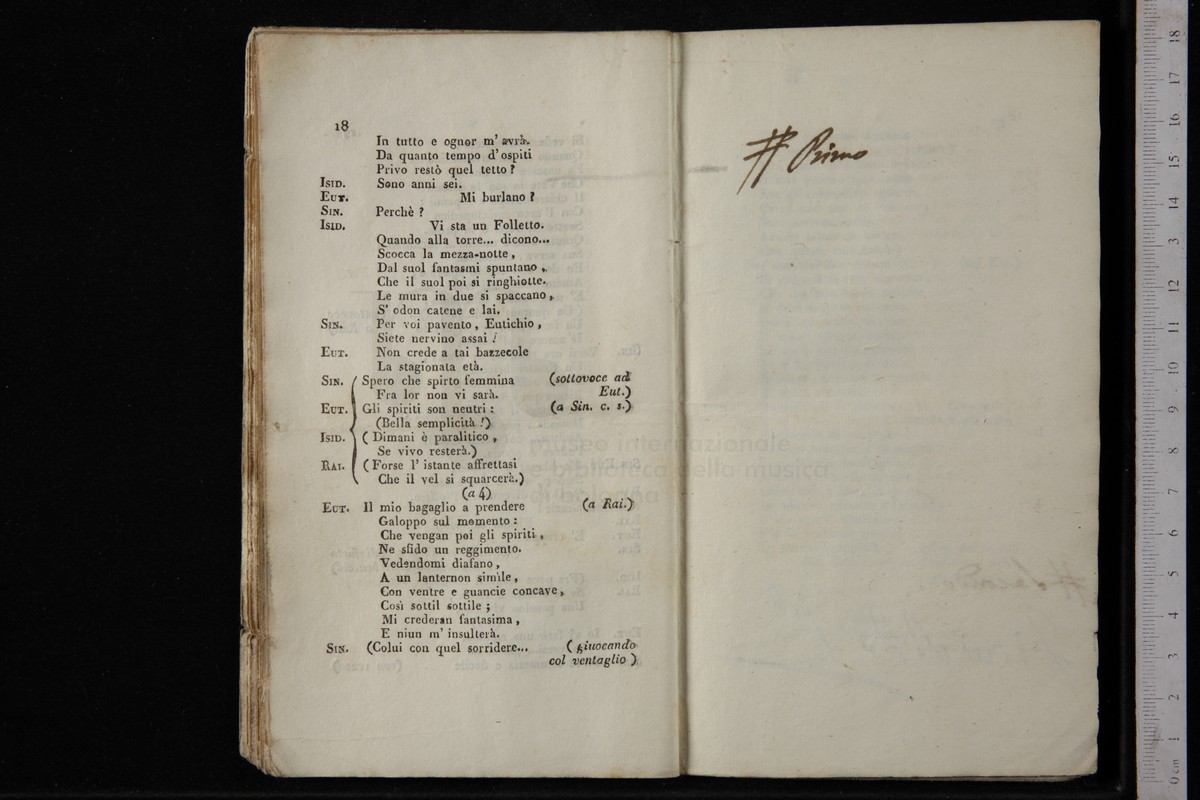 18
In tutto e ognor m' avrà.
Da quanto tempo d' ospiti
Privo restò quel tetto?
Isid. Sono anni sei.
Eut. Mi burlano?
Sin. Perchè?
Isid. Vi sta un Folletto.
Quando alla torre... dicono...
Scocca la mezza-notte,
Dal suol fantasmi spuntano,
Che il suol poi si ringhiotte.
Le mura in due si spaccano,
S' odon catene e lai.
Sin. Per voi pavento, Eutichio,
Siete nervino assai!
Eut. Non crede a tai bazzecole
La stagionata età.
Sin. Spero che spirto femmina (sottovoce ad
Fra lor non vi sarà. Eut.)
Eut. Gli spiriti son neutri: (a Sin. c. s.)
(Bella semplicità!)
Isid. (Dimani è paralitico,
Se vivo resterà.)
Rai. (Forse l' istante affrettasi
Che il vel si squarcerà.)
(a 4)
Eut. Il mio bagaglio a prendere (a Rai.)
Galoppo sul momento:
Che vengan poi gli spiriti,
Ne sfido un reggimento.
Vedendomi diafano,
A un lanternon simile,
Con ventre e guancie concave,
Così sottil sottile;
Mi crederan fantasima,
E niun m' insulterà.
Sin. (Colui con quel sorridere... (giuocando
col ventaglio)
# Primo
museo internazionale
e biblioteca della musica
di bologna
0 cm 1 2 3 4 5 6 7 8 9 10 11 12 13 14 15 16 17 18